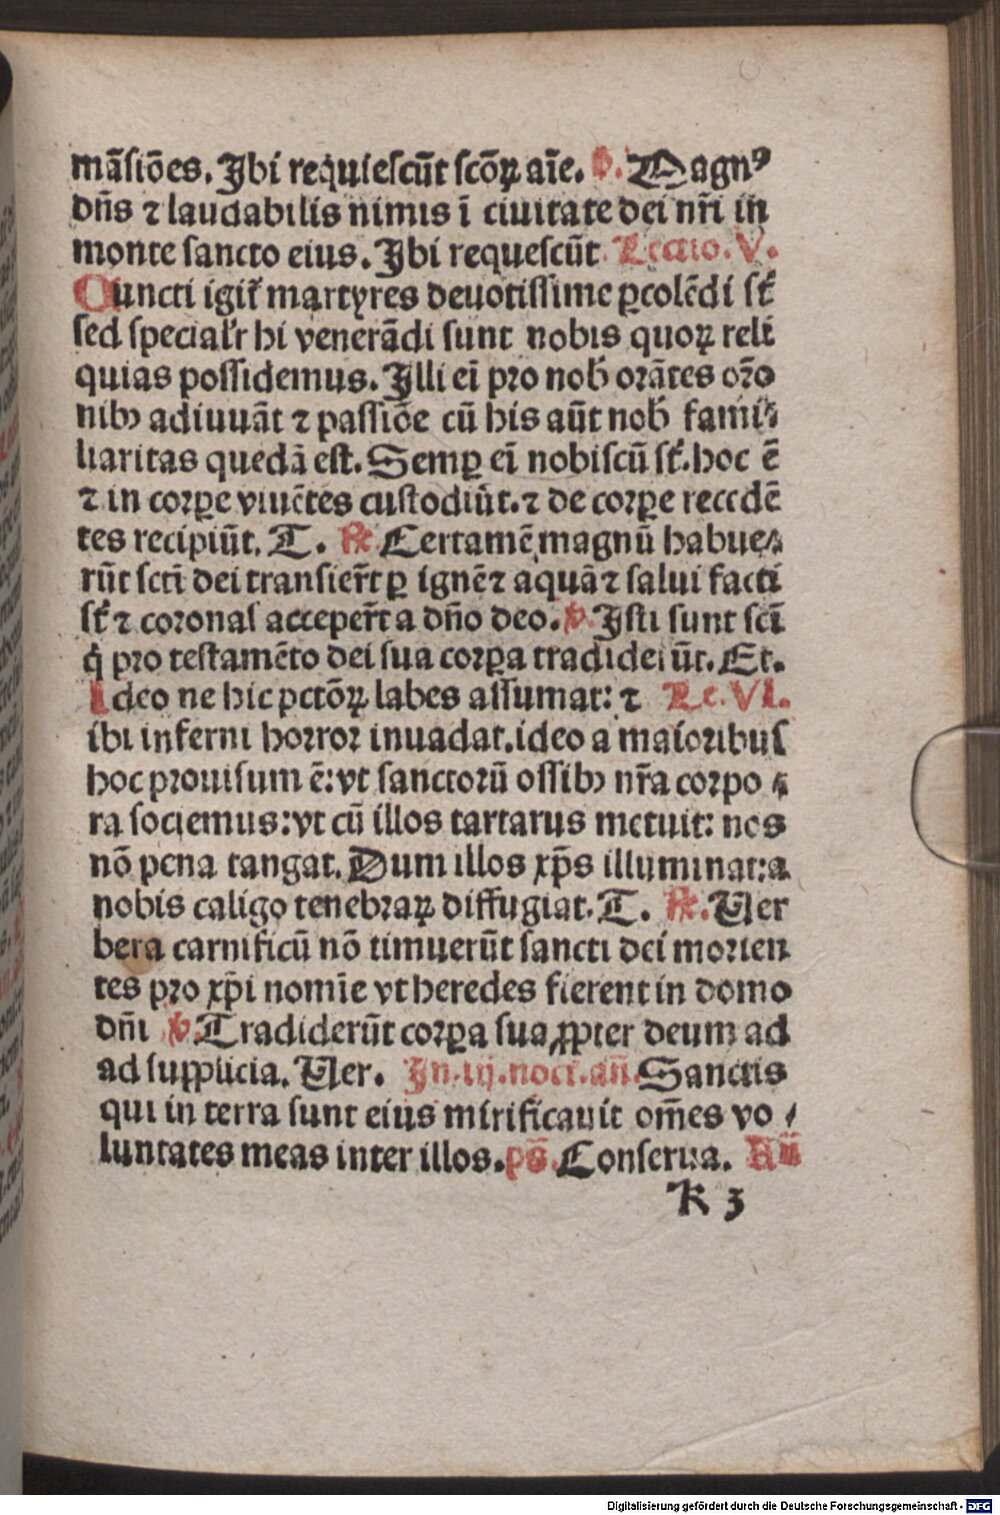 mãſiões. Ibi requieſcūt ſcõꝝ aīe. ℣. Magnꝰ
dñs ⁊ laudabilis nimis ī ciuitate dei nr̄i in
monte ſancto eius. Ibi requeſcūt Lectio. V.
Cuncti igit᷑ martyres deuotiſſime ꝑcolēdi ſt᷑
ſed ſpecial'r hi venerãdi ſunt nobis quoꝝ reli
quias poſſidemus. Illi eī pro nob᷒ orãtes oro᷒
nibꝫ adiuuãt ⁊ paſſiõe cū his aūt nob᷒ fami⸗
liaritas quedã eſt. Semꝑ eī nobiſcū ſt᷑. hoc ē
⁊ in corꝑe viuētes cuſtodiūt. ⁊ de corꝑe recedē
tes recipiūt. T. ℟. Certamē magnū habue⸗
rūt ſcti dei tranſier̄t ꝑ ignē ⁊ aquã ⁊ ſalui facti
ſt᷑ ⁊ coronaſ acceper̄t a dño deo. ℣. Iſti ſunt ſcī
q̇ pro teſtamēto dei ſua corꝑa tradiderūt. Et.
Ideo ne hic pctõꝝ labes aſſumat: ⁊ Le. VI.
ibi inferni horror inuadat. ideo a maioribuſ
hoc prouiſum ē: vt ſanctorū oſſibꝫ nr̄a corpo⸗
ra ſociemus: vt cū illos tartarus metuit: nos
nõ pena tangat. Dum illos xp̄s illuminat: a
nobis caligo tenebraꝝ diffugiat. T. ℟. Uer
bera carnificū nõ timuerūt ſancti dei morien
tes pro xp̄i nomīe vt heredes fierent in domo
dñi ℣. Tradiderūt corꝑa ſua ꝓpter deum ad
ad ſupplicia. Uer. In. iij. noct. añ. Sanctis
qui in terra ſunt eius mirificauit om̄es vo⸗
luntates meas inter illos. ps̄. Conſerua. Añ
K 3
Digitalisierung gefördert durch die Deutsche Forschungsgemeinschaft - DFG